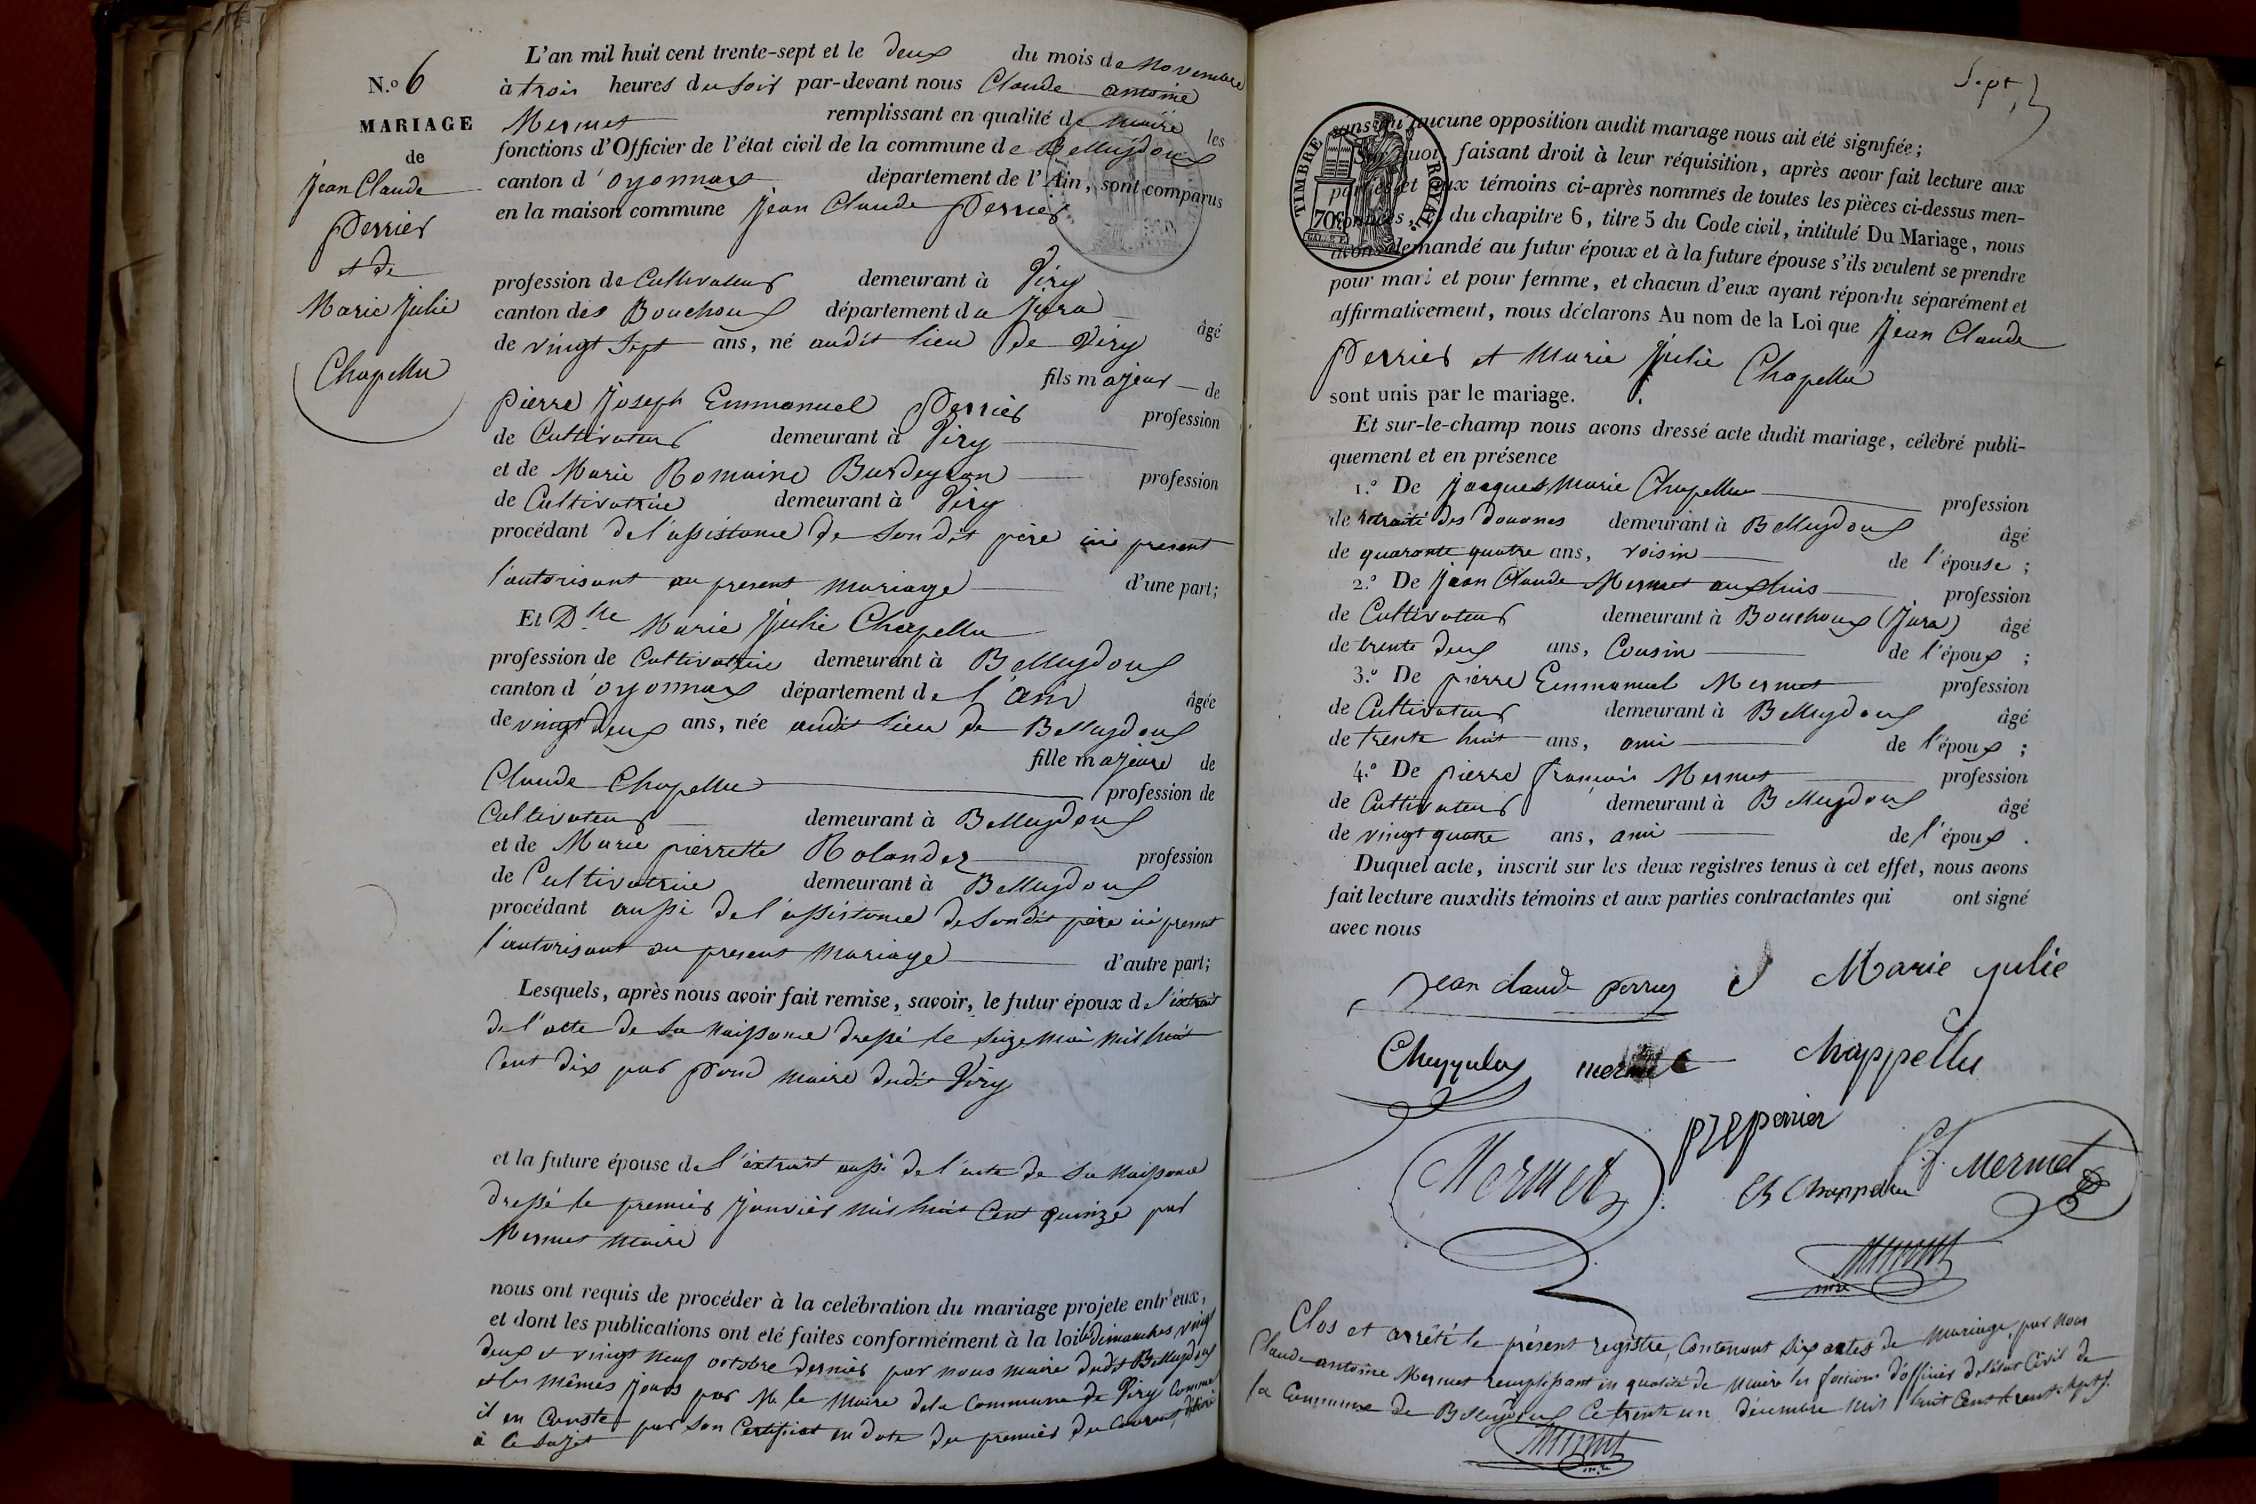 N.º 6
MARIAGE
de
Jean Claude
Perrier
et de
Marie Julie
Chapellu
L'an mil huit cent trente-sept et le deux du mois de Novembre
à trois heures du soir par-devant nous Claude antoine
Mermet remplissant en qualité de maire les
fonctions d'Officier de l'état civil de la commune de Belleydoux
canton d'oyonnax département de l'Ain, sont comparus
en la maison commune Jean Claude Perrier
profession de Cultivateur demeurant à Viry
canton des Bouchoux département du Jura âgé
de vingt sept ans, né audit lieu de Viry
fils majeur de
pierre Joseph Emmanuel Perrier profession
de Cultivateur demeurant à Viry
et de Marie Romaine Burdeyron profession
de Cultivatrice demeurant à Viry
procédant de l'assistance de son dit père ici present
l'autorisant au present mariage d'une part;
Et Dlle Marie Julie Chapellu
profession de Cultivatrice demeurant à Belleydoux
canton d'oyonnax département de l'ain âgée
de vingt deux ans, née audit lieu de Belleydoux
fille majeure de
Claude Chapellu profession de
Cultivateur demeurant à Belleydoux
et de Marie pierrette Rolandez profession
de Cultivatrice demeurant à Belleydoux
procédant aussi de l'assistance de sondit père ici present
l'autorisant au present mariage d'autre part;
Lesquels, après nous avoir fait remise, savoir, le futur époux de l'extrait
de l'acte de sa Naissance dressé le seize mai mil huit
Cent dix par maire dudit Viry
et la future épouse de l'extrait aussi de l'acte de sa Naissance
dressé le premier Janvier mil huit Cent quinze par
Mermet maire
nous ont requis de procéder à la celébration du mariage projeté entr'eux,
et dont les publications ont été faites conformément à la loi les dimanches vingt
deux et vingt neuf octobre dernier par nous maire dudit Belleydoux
et les mêmes Jours par Mr le Maire de la Commune de Viry Comme
il en Conste par son Certificat en date du premier du Courant, délivré
à Ce sujet
Sept
TIMBRE ROYAL
70
sans qu'aucune opposition audit mariage nous ait été signifiée;
Sur quoi, faisant droit à leur réquisition, après avoir fait lecture aux
parties et aux témoins ci-après nommés de toutes les pièces ci-dessus men-
tionnées, du chapitre 6, titre 5 du Code civil, intitulé Du Mariage, nous
avons demandé au futur époux et à la future épouse s'ils veulent se prendre
pour mari et pour femme, et chacun d'eux ayant répondu séparément et
affirmativement, nous déclarons Au nom de la Loi que Jean Claude
Perrier et Marie Julie Chapellu
sont unis par le mariage.
Et sur-le-champ nous avons dressé acte dudit mariage, célébré publi-
quement et en présence
1.º De Jacques Marie Chapellu profession
de retraité des douanes demeurant à Belleydoux âgé
de quarante quatre ans, voisin de l'épouse;
2.º De Jean Claude Mermet profession
de Cultivateur demeurant à Bouchoux (Jura) âgé
de trente deux ans, Cousin de l'époux;
3.º De pierre Emmanuel Mermet profession
de Cultivateur demeurant à Belleydoux âgé
de trente huit ans, ami de l'époux;
4.º De pierre françois Mermet profession
de Cultivateur demeurant à Belleydoux âgé
de vingt quatre ans, ami de l'époux.
Duquel acte, inscrit sur les deux registres tenus à cet effet, nous avons
fait lecture auxdits témoins et aux parties contractantes qui ont signé
avec nous
jean claude perrier Marie julie
mermet chappellu
perrier
Mermet Cl Chappellu Mermet
Mermet
mre
Clos et arrêté le présent registre, Contenant Six actes de Mariage, par Nous
Claude antoine Mermet remplissant en qualité de maire les fonctions d'officier de l'état Civil de
la Commune de Belleydoux Ce trente un décembre mil huit Cent trente sept.
Mermet
mre